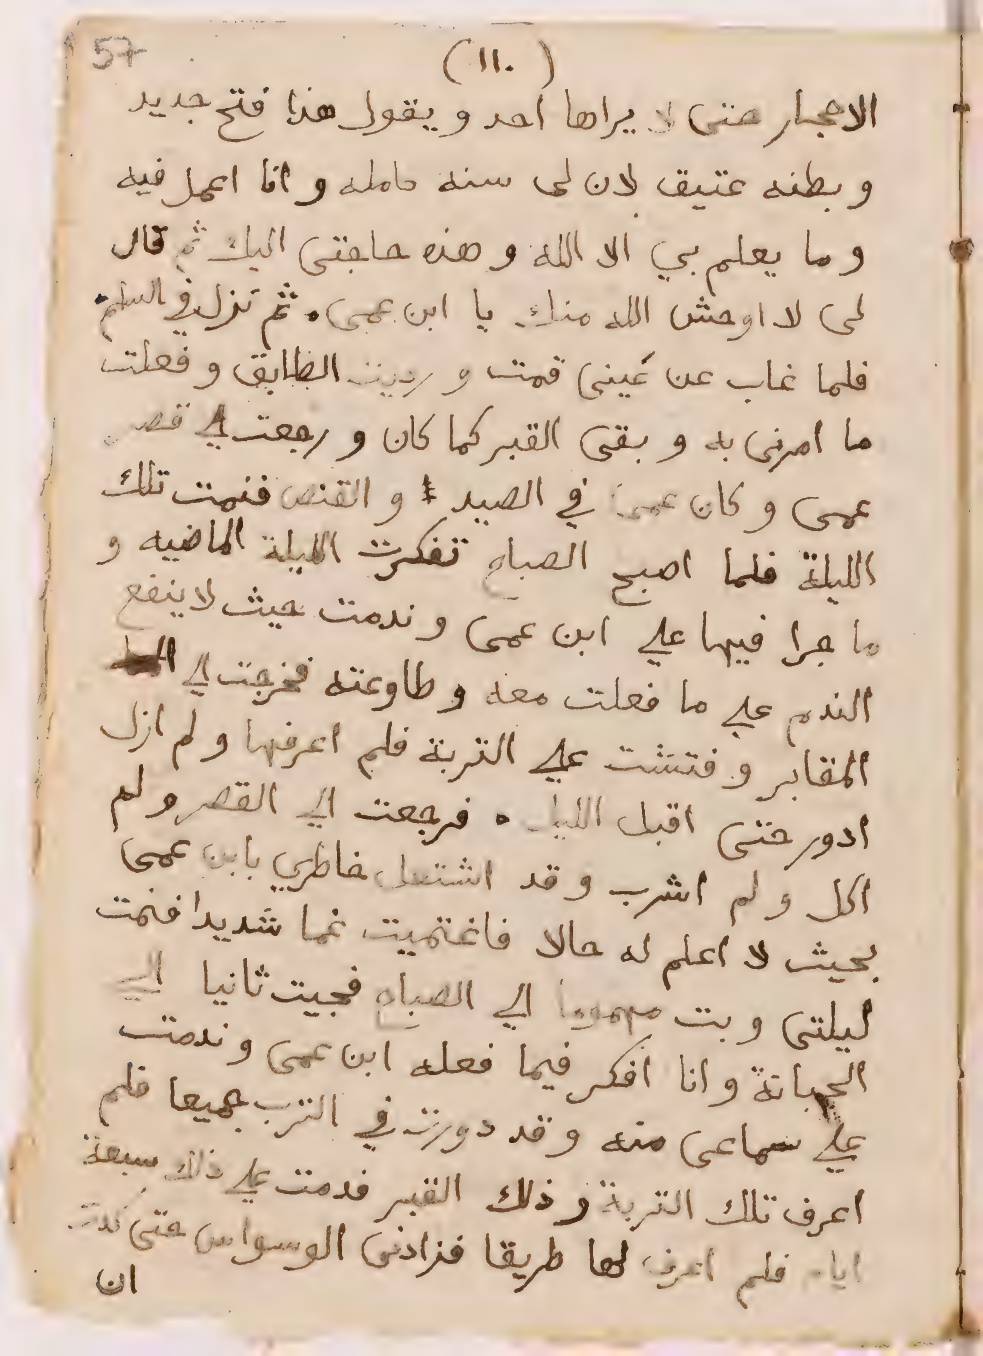 57
(١١٠)
الاحجار حتى لا يراها احد و يقول هذا فتح جديد
و بطنه عتيق لان لى سنه كامله و انا اعمل فيه
و ما يعلم بي الا الله و هذه حاجتى اليك ثم قال
لى لا اوحش الله منك يا ابن عمى . ثم نزل في السلم .
فلما غاب عن عينى قمت و رديت الطابق و فعلت
ما امرنى به و بقى القبر كما كان و رجعت الي قصر
عمى و كان عمى في الصيد و القنص فنمت تلك
الليلة فلما اصبح الصباح تفكرت الليلة الماضيه و
ما جرا فيها علي ابن عمى و ندمت حيث لا ينفع
الندم علي ما فعلت معه و طاوعته فخرجت الي
المقابر و فتشت علي التربة فلم اعرفها و لم ازل
ادور حتى اقبل الليل . فرجعت الي القصر و لم
اكل و لم اشرب و قد اشتعل خاطري بابن عمى
بحيث لا اعلم له حالا فاغتميت غما شديدا فنمت
ليلتى و بت مهموما الي الصباح فجيت ثانيا الي
الجبانة و انا افكر فيما فعله ابن عمى و ندمت
علي سماعى منه و قد دورت في الترب جميعا فلم
اعرف تلك التربة و ذلك القبر فدمت علي ذلك سبعة
ايام فلم اعرف لها طريقا فزادنى الوسواس حتى كدت
ان